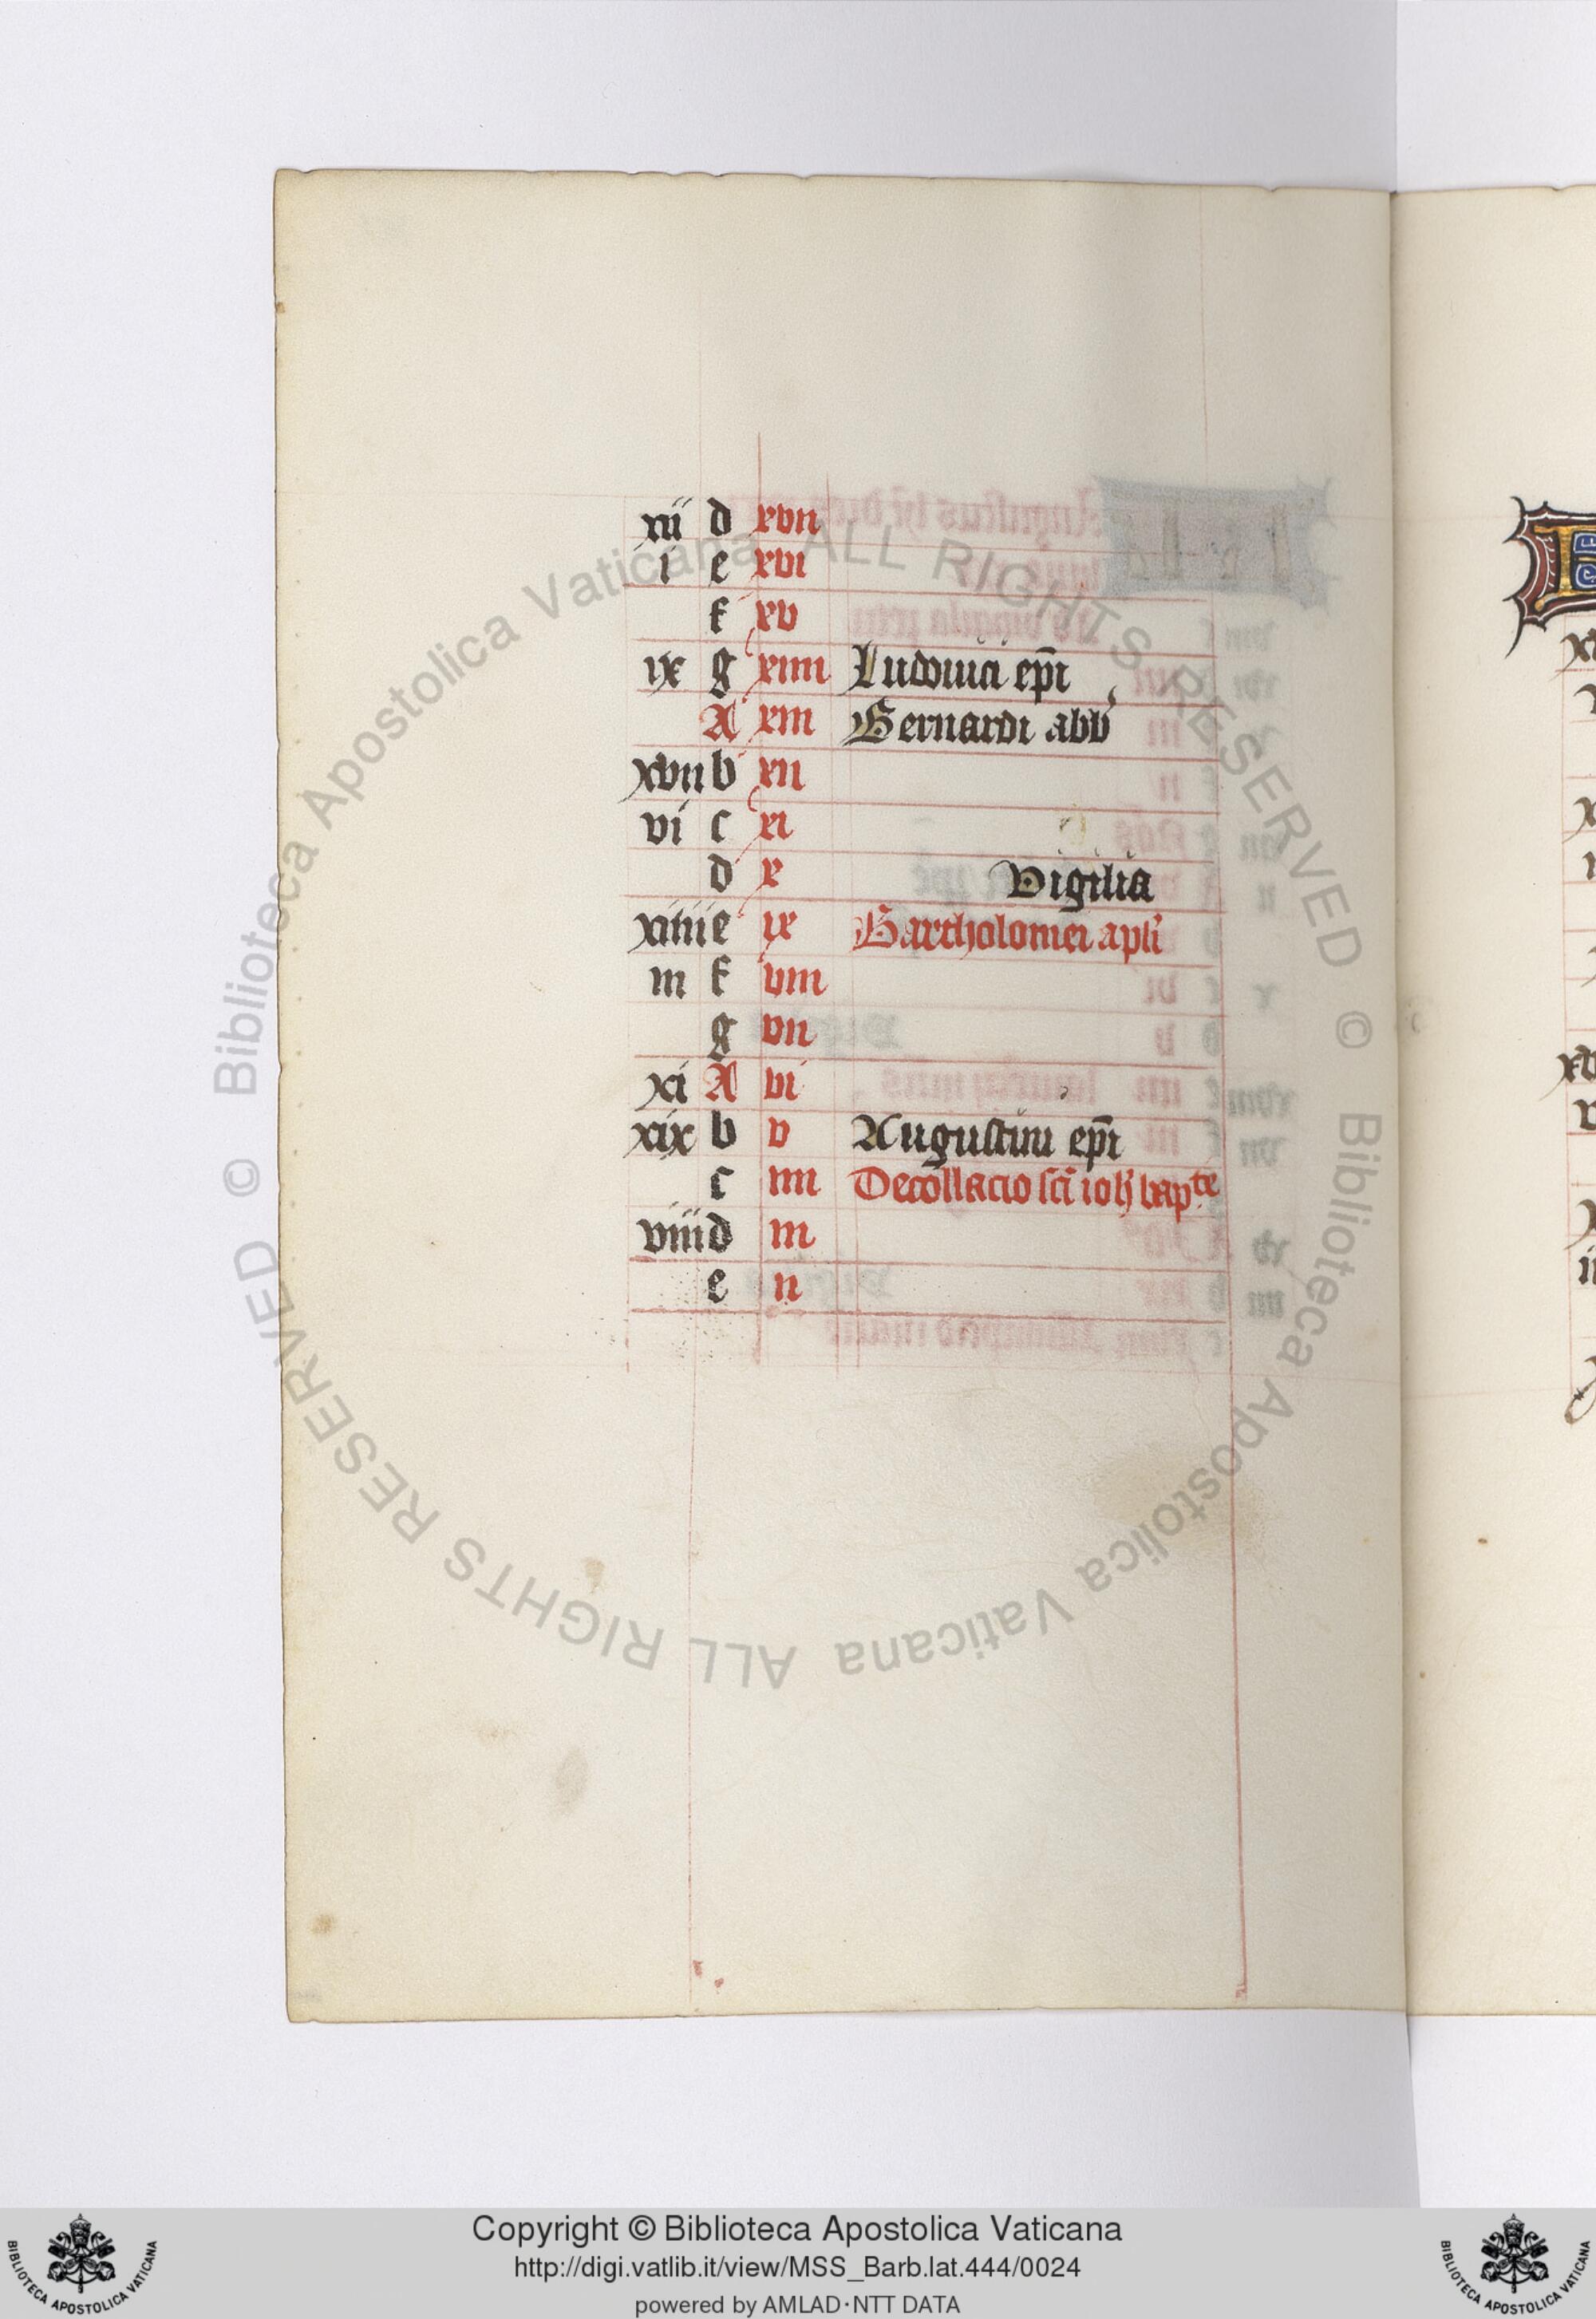 xii d xvii
i e xvi
f xv
ix g xiiii Ludouici ep̄i
A xiii Bernardi abb'
xvii b xii
vi c xi
d x Vigilia
xiiii e ix Bartholomei apli
iii f viii
g vii
xi A vi
xix b v Augustini ep̄i
c iiii Decollacio sc̄i ioh' bap.te
viii d iii
e ii
© Biblioteca Apostolica Vaticana ALL RIGHTS RESERVED
© Biblioteca Apostolica Vaticana ALL RIGHTS RESERVED
Copyright © Biblioteca Apostolica Vaticana
http://digi.vatlib.it/view/MSS_Barb.lat.444/0024
powered by AMLAD·NTT DATA
BIBLIOTECA APOSTOLICA VATICANA
BIBLIOTECA APOSTOLICA VATICANA